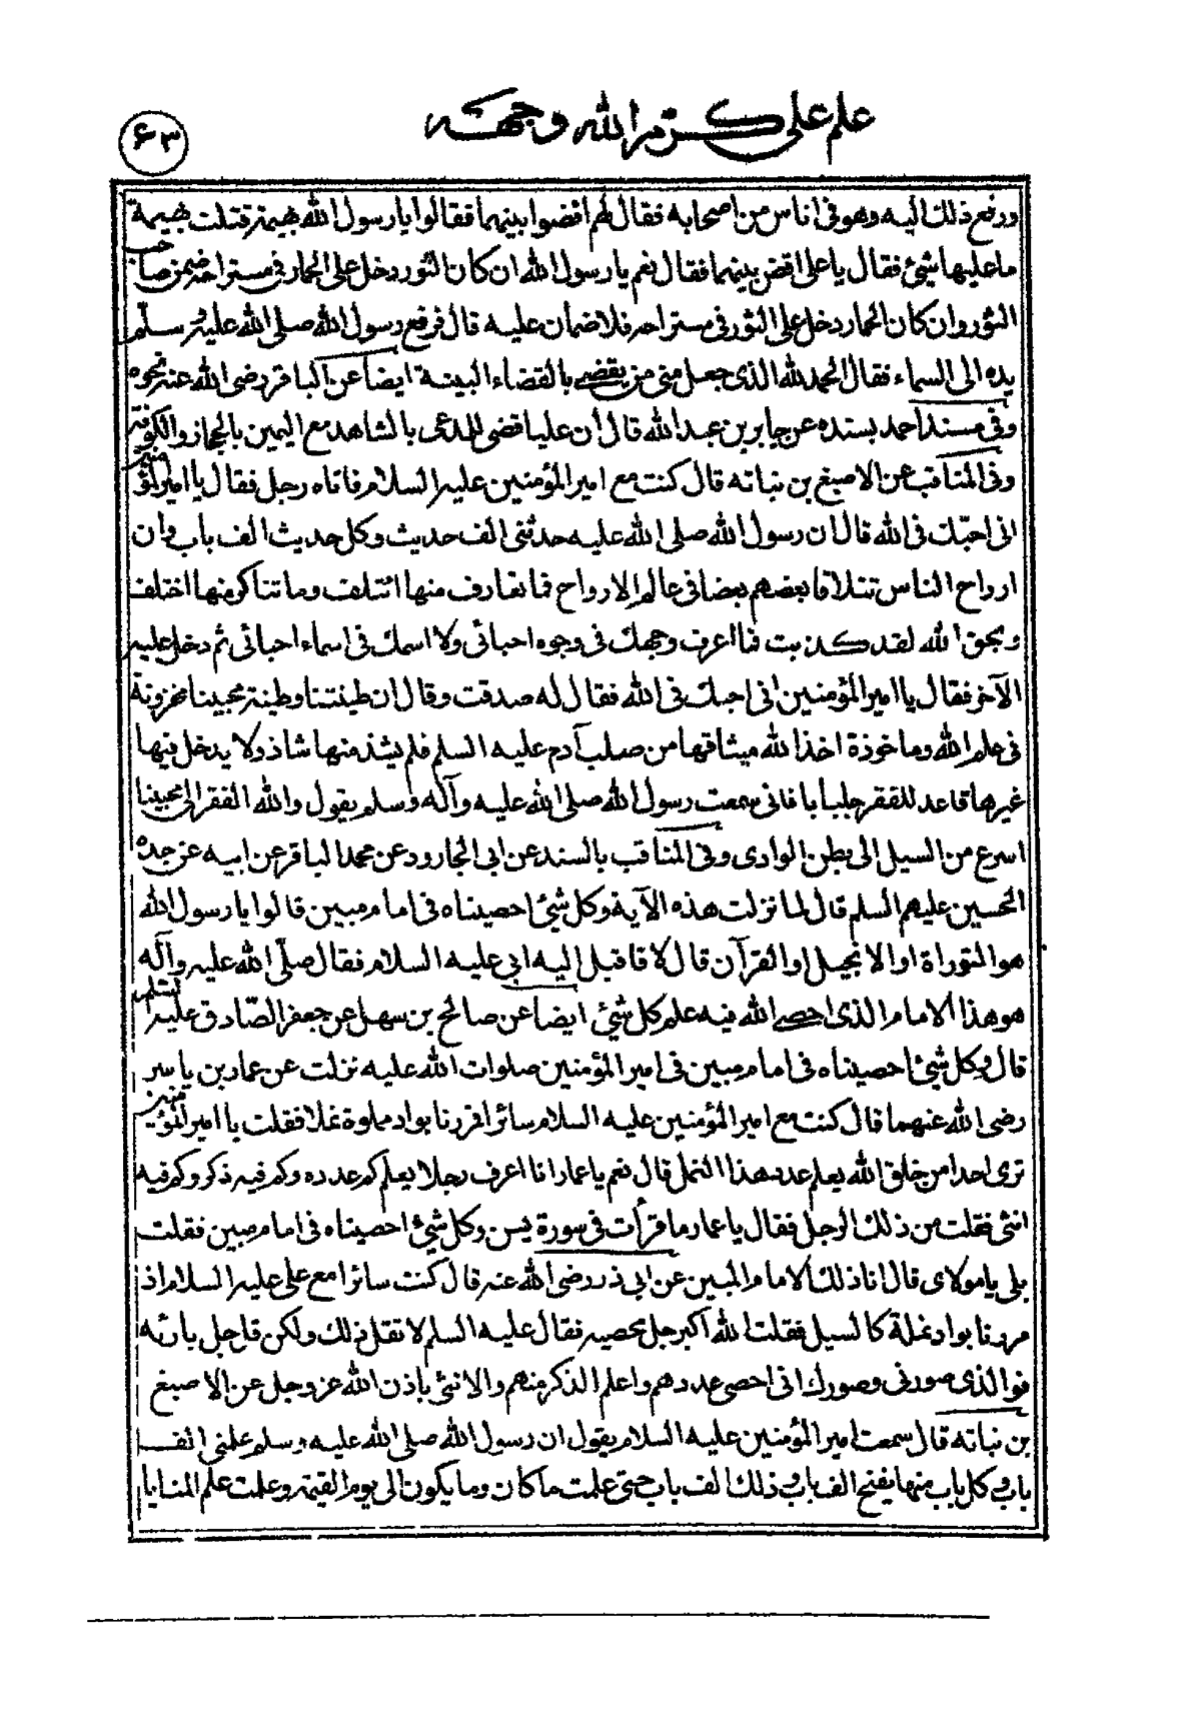 علم علی کرم الله وجهه
۶۳
ورفع ذلك اليه وهو فی اناس من اصحابه فقال لهم اقضوا بينهما فقالوا يا رسول الله بهيمة قتلت بهيمة
ما عليها شیئ فقال يا علی اقض بينهما فقال نعم يا رسول الله ان كان الثور دخل علی الحمار فی مستراحه ضمن صاحب
الثور وان كان الحمار دخل علی الثور فی مستراحه فلا ضمان عليه قال فرفع رسول الله صلی الله عليه وسلم
يده الی السماء فقال الحمد لله الذی جعل منی من يقضی بالقضاء البينة ايضا عن الباقر رضی الله عنه نحوه
وفی مسند احمد بسنده عن جابر بن عبد الله قال ان عليا قضی للمدعی بالشاهد مع اليمين بالحجاز والكوفة
وفی المناقب عن الاصبغ بن نباته قال كنت مع امير المؤمنين عليه السلام فاتاه رجل فقال يا امير المؤمنين
انی احبّك فی الله قال ان رسول الله صلی الله عليه حدثنی الف حديث وكل حديث الف باب وان
ارواح الناس تتلاقا بعضهم بعضا فی عالم الارواح فما تعارف منها ائتلف وما تناكر منها اختلف
وبحق الله لقد كذبت فما اعرف وجهك فی وجوه احبائی ولا اسمك فی اسماء احبائی ثم دخل عليه
الآخر فقال يا امير المؤمنين انی احبك فی الله فقال له صدقت وقال ان طينتنا وطينة محبينا مخزونة
فی علم الله وماخوذة اخذ الله ميثاقها من صلب آدم عليه السلم فلم يشذ منها شاذ ولا يدخل فيها
غيرها فاعد للفقر جلبابا فانی سمعت رسول الله صلی الله عليه وآله وسلم يقول والله الفقر الی محبينا
اسرع من السيل الی بطن الوادی وفی المناقب بالسند عن ابی الجارود عن محمد الباقر عن ابيه عن جده
الحسين عليهم السلم قال لما نزلت هذه الآية وكل شیئ احصيناه فی امام مبين قالوا يا رسول الله
هو التوراة او الانجيل او القرآن قال لا فاقبل اليه ابی عليه السلام فقال صلّی الله عليه وآله
هو هذا الامام الذی احصی الله فيه علم كل شیئ ايضا عن صالح بن سهل عن جعفر الصّادق عليه السلم
قال وكل شیئ احصيناه فی امام مبين فی امير المؤمنين صلوات الله عليه نزلت عن عمار بن ياسر
رضی الله عنهما قال كنت مع امير المؤمنين عليه السلام سائرا فمررنا بواد مملوة نملا فقلت يا امير المؤمنين
تری احدا من خلق الله يعلم عدد هذا النمل قال نعم يا عمار انا اعرف رجلا يعلم كم عدده وكم فيه ذكر وكم فيه
انثی فقلت من ذلك الرجل فقال يا عمار ما قرأت فی سورة يس وكل شیئ احصيناه فی امام مبين فقلت
بلی يا مولای قال انا ذلك الامام المبين عن ابی ذر رضی الله عنه قال كنت سائرا مع علی عليه السلام اذ
مررنا بواد نملة كالسيل فقلت الله اكبر جل محصيه فقال عليه السلم لا تقل ذلك ولكن قل جل بارئه
فوالذی صورنی وصورك انی احصی عددهم واعلم الذكر منهم والانثی باذن الله عز وجل عن الاصبغ
بن نباته قال سمعت امير المؤمنين عليه السلام يقول ان رسول الله صلی الله عليه وسلم علمنی الف
باب وكل باب منها يفتح الف باب فذلك الف الف باب حتی علمت ما كان وما يكون الی يوم القيمة وعلمت علم المنايا